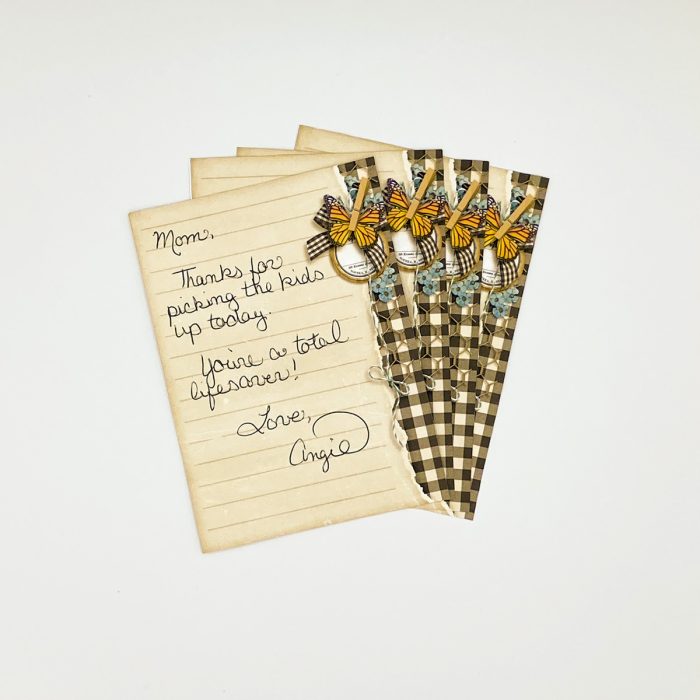 Mom,
Thanks for
picking the kids
up today.
You're a total
lifesaver!
Love,
Angie